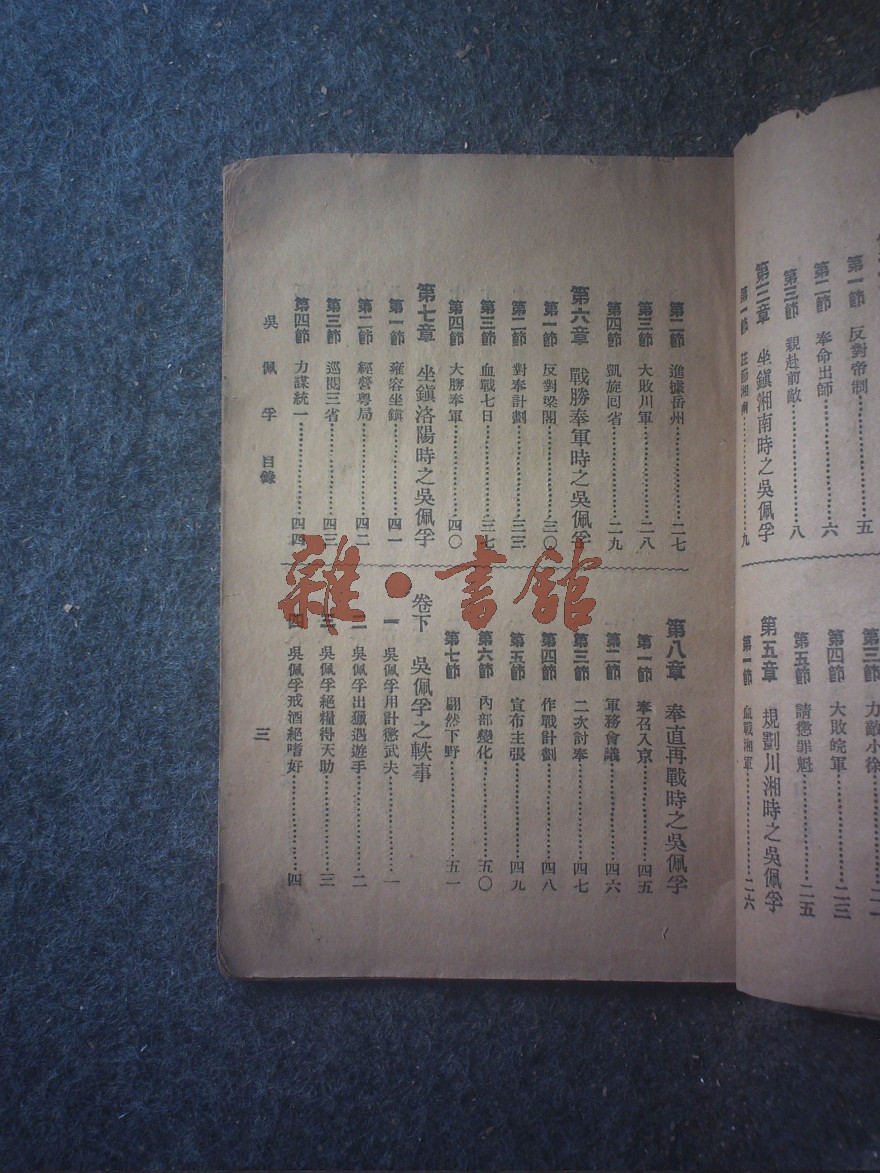 第一節 反對帝制……五
第二節 奉命出師……六
第三節 親赴前敵……八
第三章 坐鎮湘南時之吳佩孚
第一節……九
力敵小徐……二一
第四節 大敗皖軍……二三
第五節 請懲罪魁……二五
第五章 規劃川湘時之吳佩孚
第一節 血戰湘軍……二六
第二節 進據岳州……二七
第三節 大敗川軍……二八
第四節 凱旋回省……二九
第六章 戰勝奉軍時之吳佩孚
第一節 反對梁閣……三〇
第二節 對奉計劃……三三
第三節 血戰七日……三七
第四節 大勝奉軍……四〇
第七章 坐鎮洛陽時之吳佩孚
第一節 雍容坐鎮……四一
第二節 經營粵局……四二
第三節 巡閱三省……四三
第四節 力謀統一……四四
第八章 奉直再戰時之吳佩孚
第一節 奉召入京……四五
第二節 軍務會議……四六
第三節 二次討奉……四七
第四節 作戰計劃……四八
第五節 宣布主張……四九
第六節 內部變化……五〇
第七節 翩然下野……五一
卷下 吳佩孚之軼事
一 吳佩孚用計懲武夫……一
二 吳佩孚出獵遇遊手……二
三 吳佩孚絕糧得天助……三
四 吳佩孚戒酒絕嗜好……四
吳佩孚 目錄
三
雜·書館